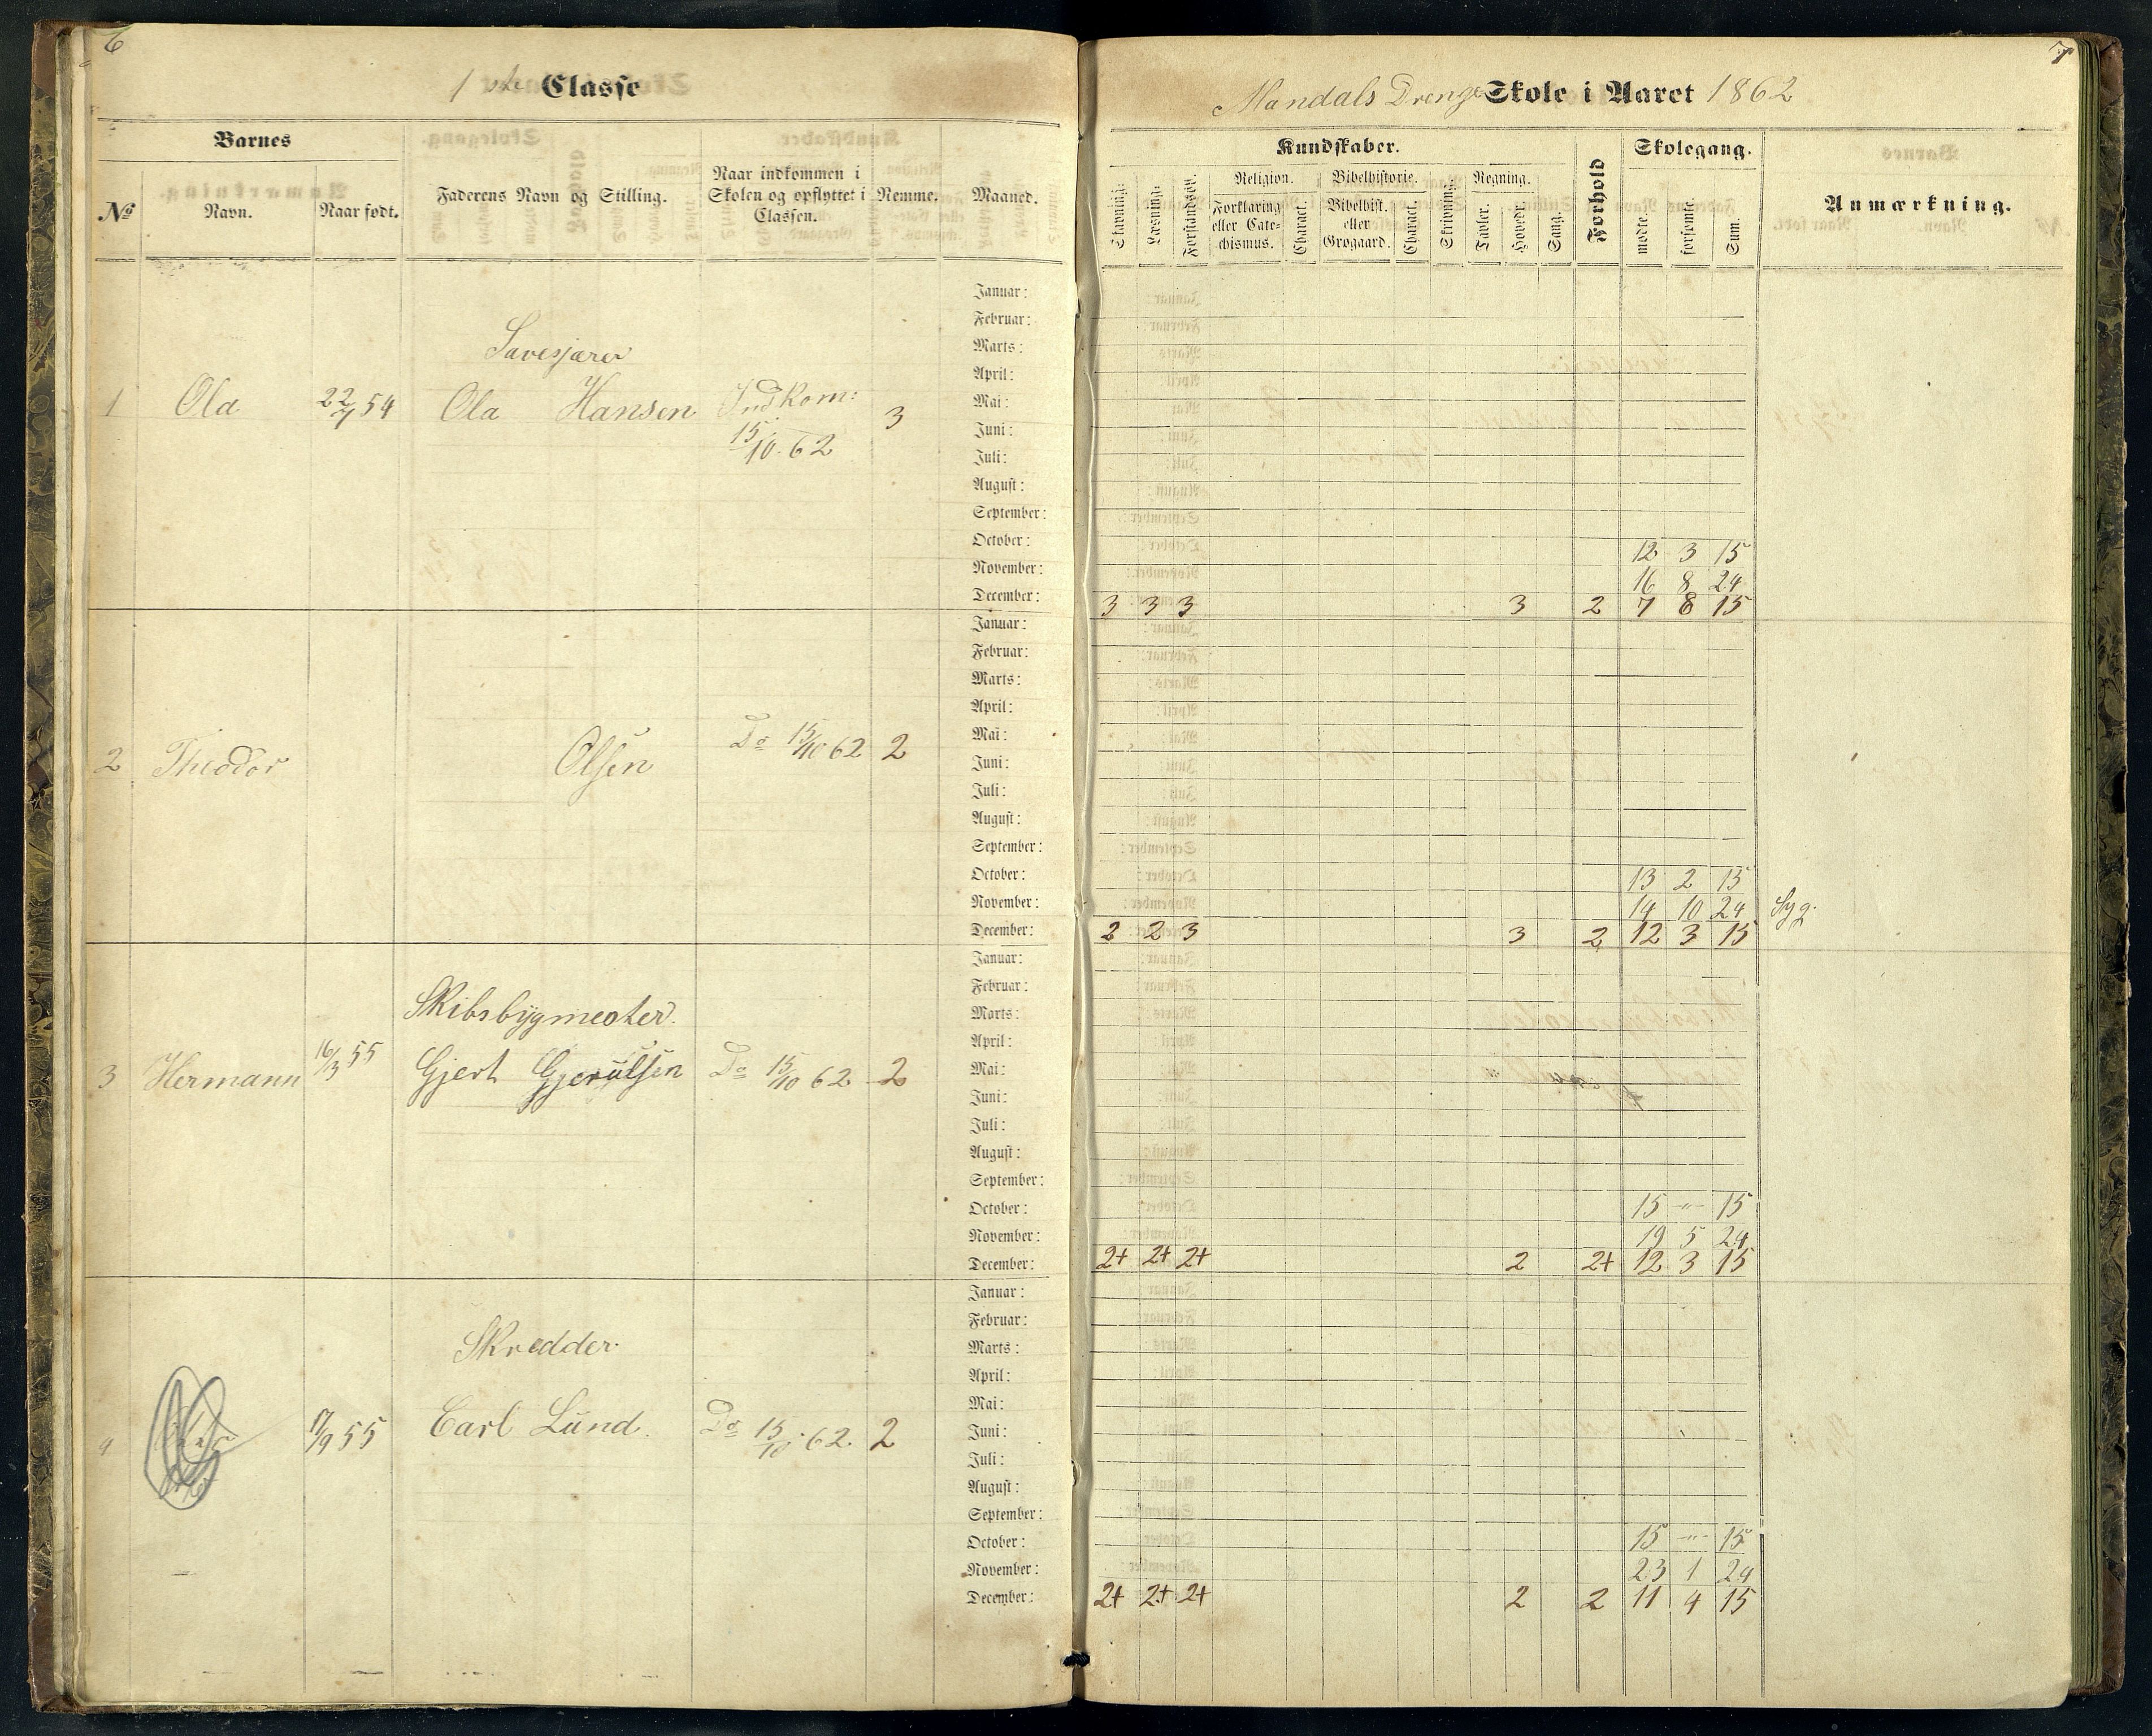 6
1ste Classe
Barnes
No
Navn.
Naar født.
Faderens Navn og Stilling.
Naar indkommen i
Skolen og opflyttet i
Classen.
Nemme.
Maaned.
Januar:
Februar:
Marts:
April:
Mai:
Juni:
Juli:
August:
September:
October:
November:
December:
1 Ola 22/7 54
Ola Hansen
Indkom:
15/10. 62
3
Januar:
Februar:
Marts:
April:
Mai:
Juni:
Juli:
August:
September:
October:
November:
December:
2 Theodor
Olsen
Do 15/10 62 2
Januar:
Februar:
Marts:
April:
Mai:
Juni:
Juli:
August:
September:
October:
November:
December:
Skibsbygmester.
3 Hermann 16/3 55
Gjert
Do 15/10 62 2
Januar:
Februar:
Marts:
April:
Mai:
Juni:
Juli:
August:
September:
October:
November:
December:
Skredder.
4 17/9 55
Carl Lund.
Do 15/10 62. 2
7
Mandals Drenge Skole i Aaret 1862
Kundskaber.
Forhold
Skolegang.
Anmærkning.
Stavning.
Læsning.
Forstandsøv.
Religion.
Forklaring
eller Cate-
chismus.
Charact.
Bibelhistorie.
Bibelhist.
eller
Grøgaard.
Charact.
Skrivning.
Regning.
Tavler.
Hovedr.
Sang.
mødte.
forsømte.
Sum.
12 3 15
16 8 24
3 3 3 3 2 7 8 15
13 2 15
14 10 24 Syg.
2 2 3 3 2 12 3 15
15 -"- 15
19 5 24
2+ 2+ 2+ 2 2+ 12 3 15
15 -"- 15
23 1 24
2+ 2+ 2+ 2 2 11 4 15